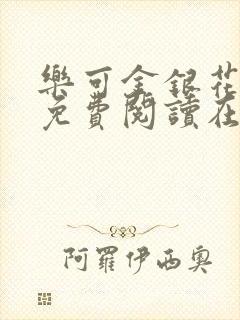 樂可金銀花
免費閱讀在
阿羅伊西奧